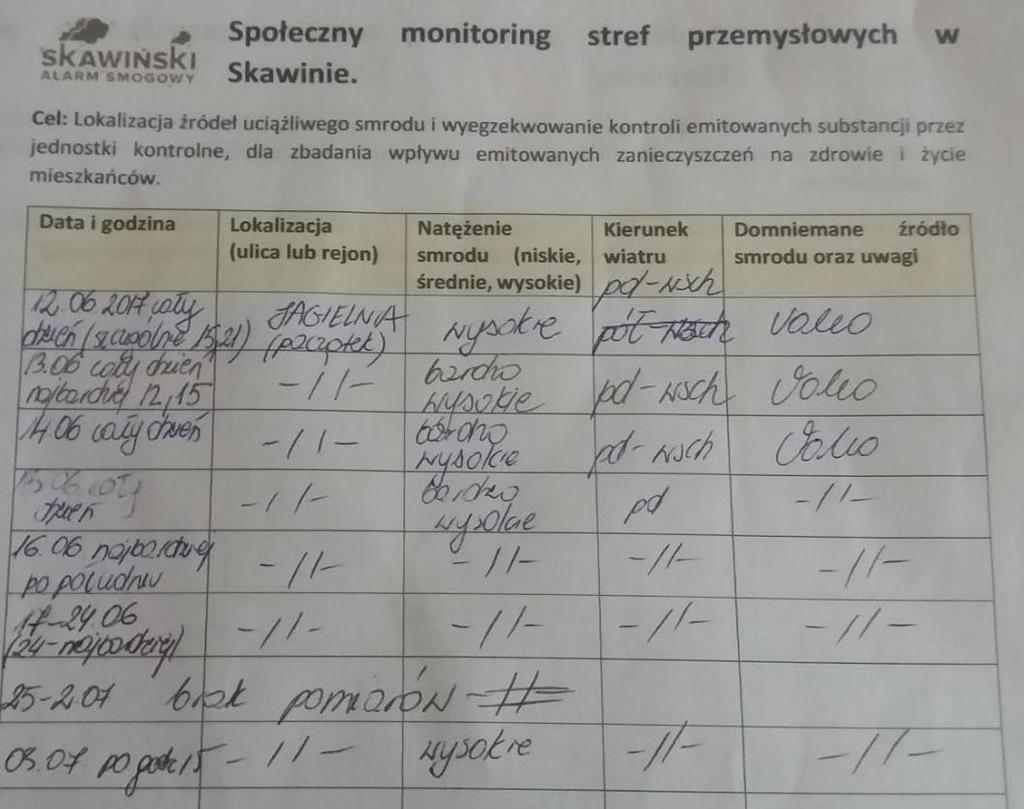 SKAWIŃSKI
ALARM SMOGOWY
Społeczny monitoring stref przemysłowych w
Skawinie.
Cel: Lokalizacja źródeł uciążliwego smrodu i wyegzekwowanie kontroli emitowanych substancji przez
jednostki kontrolne, dla zbadania wpływu emitowanych zanieczyszczeń na zdrowie i życie
mieszkańców.
Data i godzina
Lokalizacja
(ulica lub rejon)
Natężenie
smrodu (niskie,
średnie, wysokie)
Kierunek
wiatru
Domniemane źródło
smrodu oraz uwagi
12.06.2017 cały
dzień (szczególnie 15,21)
JAGIELNIA
(początek)
wysokie
pd-wsch
półT-wsch
Valeo
13.06 cały dzień
najbardziej 12,15
-//-
bardzo
wysokie
pd-wsch
Valeo
14.06 cały dzień
-//-
bardzo
wysokie
pd-wsch
Valeo
15.06 cały
dzień
-//-
bardzo
wysokie
pd
-//-
16.06 najbardziej
po południu
-//-
-//-
-//-
-//-
17-24.06
(24-najbardziej)
-//-
-//-
-//-
-//-
25-2.07 brak pomiarów -//-
03.07 po godz 15
-//-
wysokie
-//-
-//-